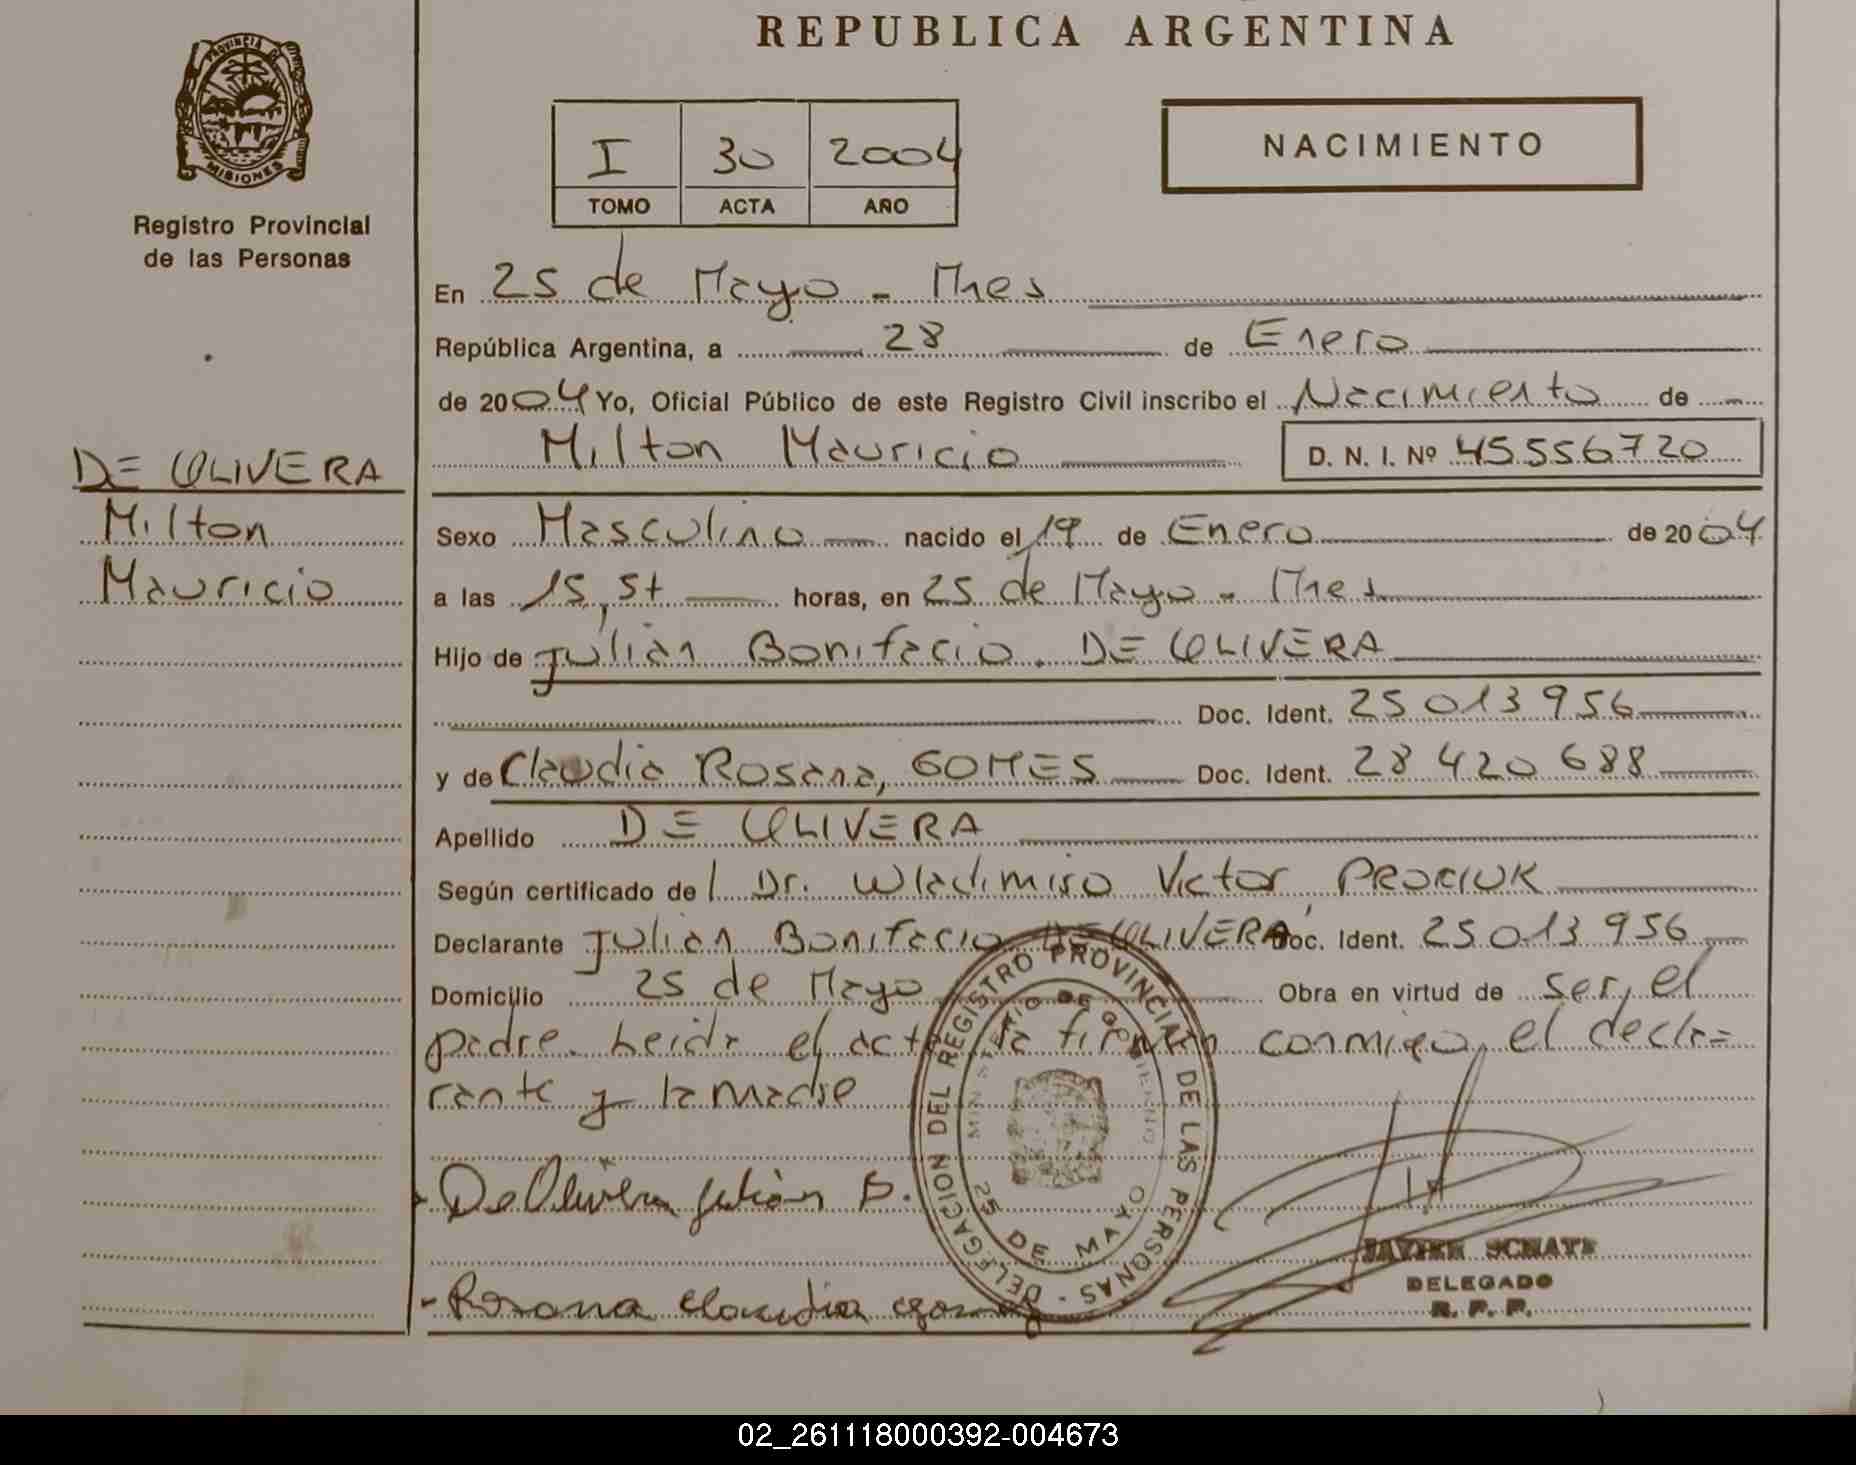 REPUBLICA ARGENTINA
PROVINCIA DE
MISIONES
Registro Provincial
de las Personas
I 30 2004
TOMO ACTA AÑO
NACIMIENTO
En 25 de Mayo - Mnes
República Argentina, a 28 de Enero
de 2004 Yo, Oficial Público de este Registro Civil inscribo el Nacimiento de
Milton Mauricio D. N. I. Nº 45556720
DE OLIVERA
Milton
Mauricio
Sexo Masculino nacido el 19 de Enero de 2004
a las 15, horas, en 25 de Mayo - Mnes
Hijo de Julián Bonifacio. DE OLIVERA
Doc. Ident. 25 013 956
y de Claudia Rosana, GOMES Doc. Ident. 28 420 688
Apellido DE OLIVERA
Según certificado de l Dr. Wladimiro Victor, PROCIUK
Declarante Julián Bonifacio DE OLIVERA Doc. Ident. 25 013 956
Domicilio 25 de Mayo Obra en virtud de ser, el
padre. Leida el acta la firman conmigo, el decla=
rante y la madre
DELEGACION DEL REGISTRO PROVINCIAL DE LAS PERSONAS -
MINISTERIO DE GOBIERNO
25 DE MAYO
De Olivera Julián B.
JAVIER
DELEGADO
R. P. P.
- Rosana Claudia Gomez
02_261118000392-004673